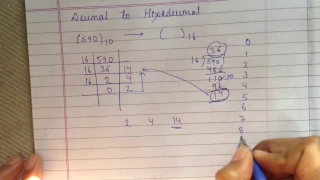 Decimal to Hexadecimal
(590)10 → ( )16
16 590
16 36 14
16 2 4
0 2
2 4 14
36
16 590
48
110
96
14
0
1
2
3
4
5
6
7
8